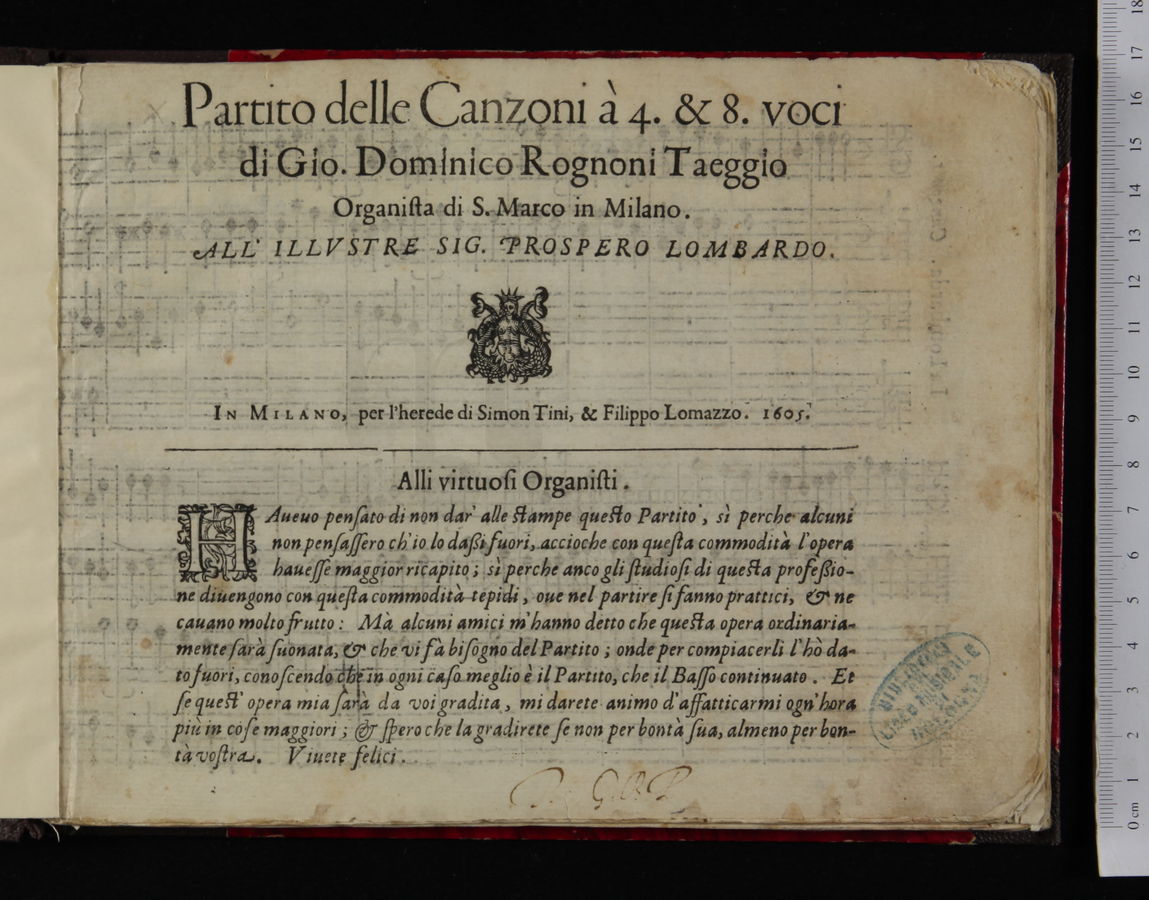 Partito delle Canzoni à 4. & 8. voci
di Gio. Dominico Rognoni Taeggio
Organiſta di S. Marco in Milano.
ALL' ILLVSTRE SIG. PROSPERO LOMBARDO.
IN MILANO, per l'herede di Simon Tini, & Filippo Lomazzo. 1605.
Alli virtuoſi Organiſti.
HAueuo penſato di non dar' alle ſtampe queſto Partito, sì perche alcuni
non penſaſſero ch'io lo daßi fuori, accioche con queſta commodità l'opera
haueſſe maggior ricapito; sì perche anco gli ſtudioſi di queſta profeßio-
ne diuengono con queſta commodità tepidi, oue nel partire ſi fanno prattici, & ne
cauano molto frutto: Mà alcuni amici m'hanno detto che queſta opera ordinaria-
mente ſarà ſuonata, & che vi fà biſogno del Partito; onde per compiacerli l'hò da-
to fuori, conoſcendo che in ogni caſo meglio è il Partito, che il Baſſo continuato. Et
ſe queſt' opera mia ſarà da voi gradita, mi darete animo d'affatticarmi ogn'hora
più in coſe maggiori; & ſpero che la gradirete ſe non per bontà ſua, almeno per bon-
tà voſtra. Viuete felici.
0 cm 1 2 3 4 5 6 7 8 9 10 11 12 13 14 15 16 17 18